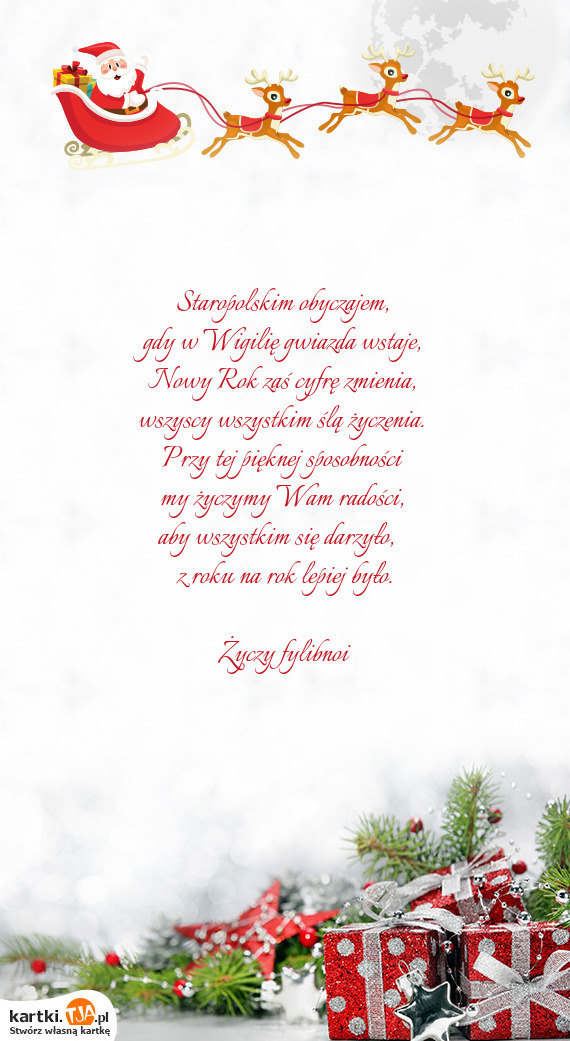 Staropolskim obyczajem,
gdy w Wigilię gwiazda wstaje,
Nowy Rok zaś cyfrę zmienia,
wszyscy wszystkim ślą życzenia.
Przy tej pięknej sposobności
my życzymy Wam radości,
aby wszystkim się darzyło,
z roku na rok lepiej było.
Życzy fylibnoi
kartki.TJA.pl
Stwórz własną kartkę